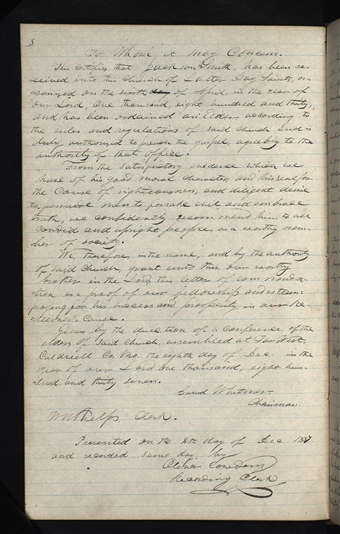 8
To Whom it May Concern.
This Certifies that Jackson Smith, has been re-
ceived into this Church of Latter Day Saints, or-
ganized on the sixth day of April in the Year of
Our Lord, One thousand, eight hundred and thirty,
and has been ordained an Elder according to
the rules and regulations of said church and is
duly authorized to preach the gospel agreeably to the
authority of that office.
From the satisfactory evidence which we
have of his good moral character, and his zeal for
the Cause of righteousness, and diligent desire
to persuade men to forsake evil and embrace
truth, we confidently recommend him to all
candid and upright people, as a worthy mem-
ber of society.
We therefore in the name, and by the authority
of said Church, grant unto this our worthy
brother in the Lord this letter of commenda-
tion as a proof of our fellowship and esteem
praying for his success and prosperity in our Re-
deemer's Cause.
Given by the direction of a Conference of the
elders of said Church assembled at Far West,
Caldwell Co Mo. the eighth day of Dec. in the
Year of our Lord One thousand, eight hun-
dred and thirty seven.
David Whitmer
Chairman
W W Phelps Clerk.
Presented on the 8th day of Dec 1837
and recorded same day by
Oliver Cowdery
Recording Clerk